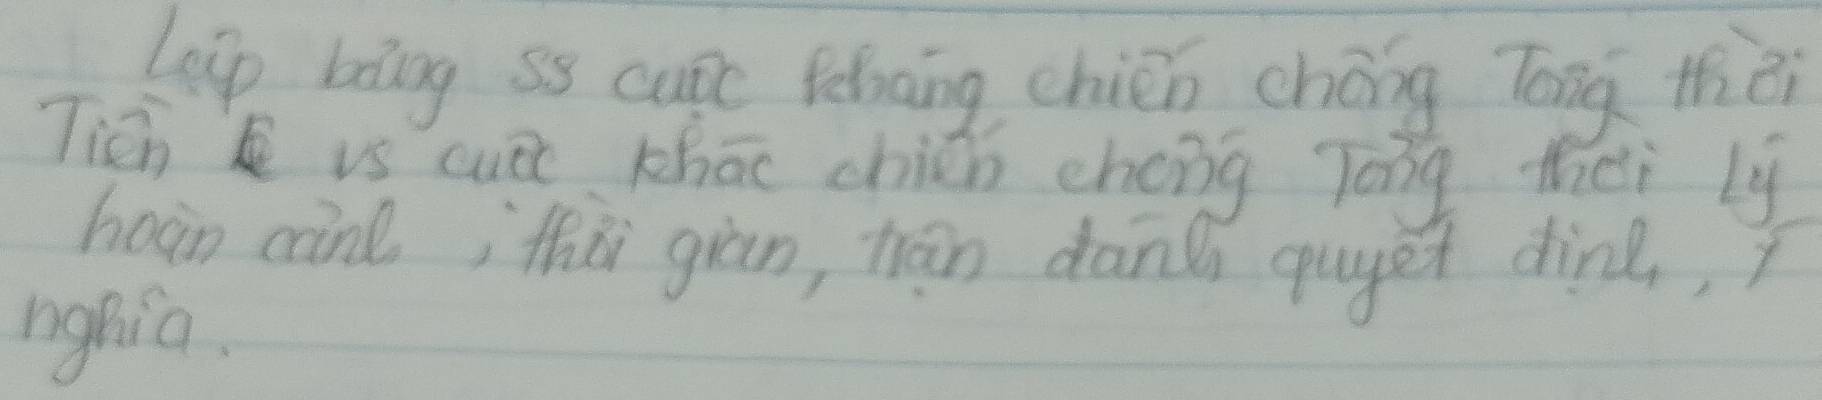 Lập bảng ss cuộc kháng chiến chống Tống thời
Tiền Lê vs cuộc khác chiến chống Tống thời Lý
hoàn cảnh, thời gian, trận đánh quyết định, ý
nghĩa.